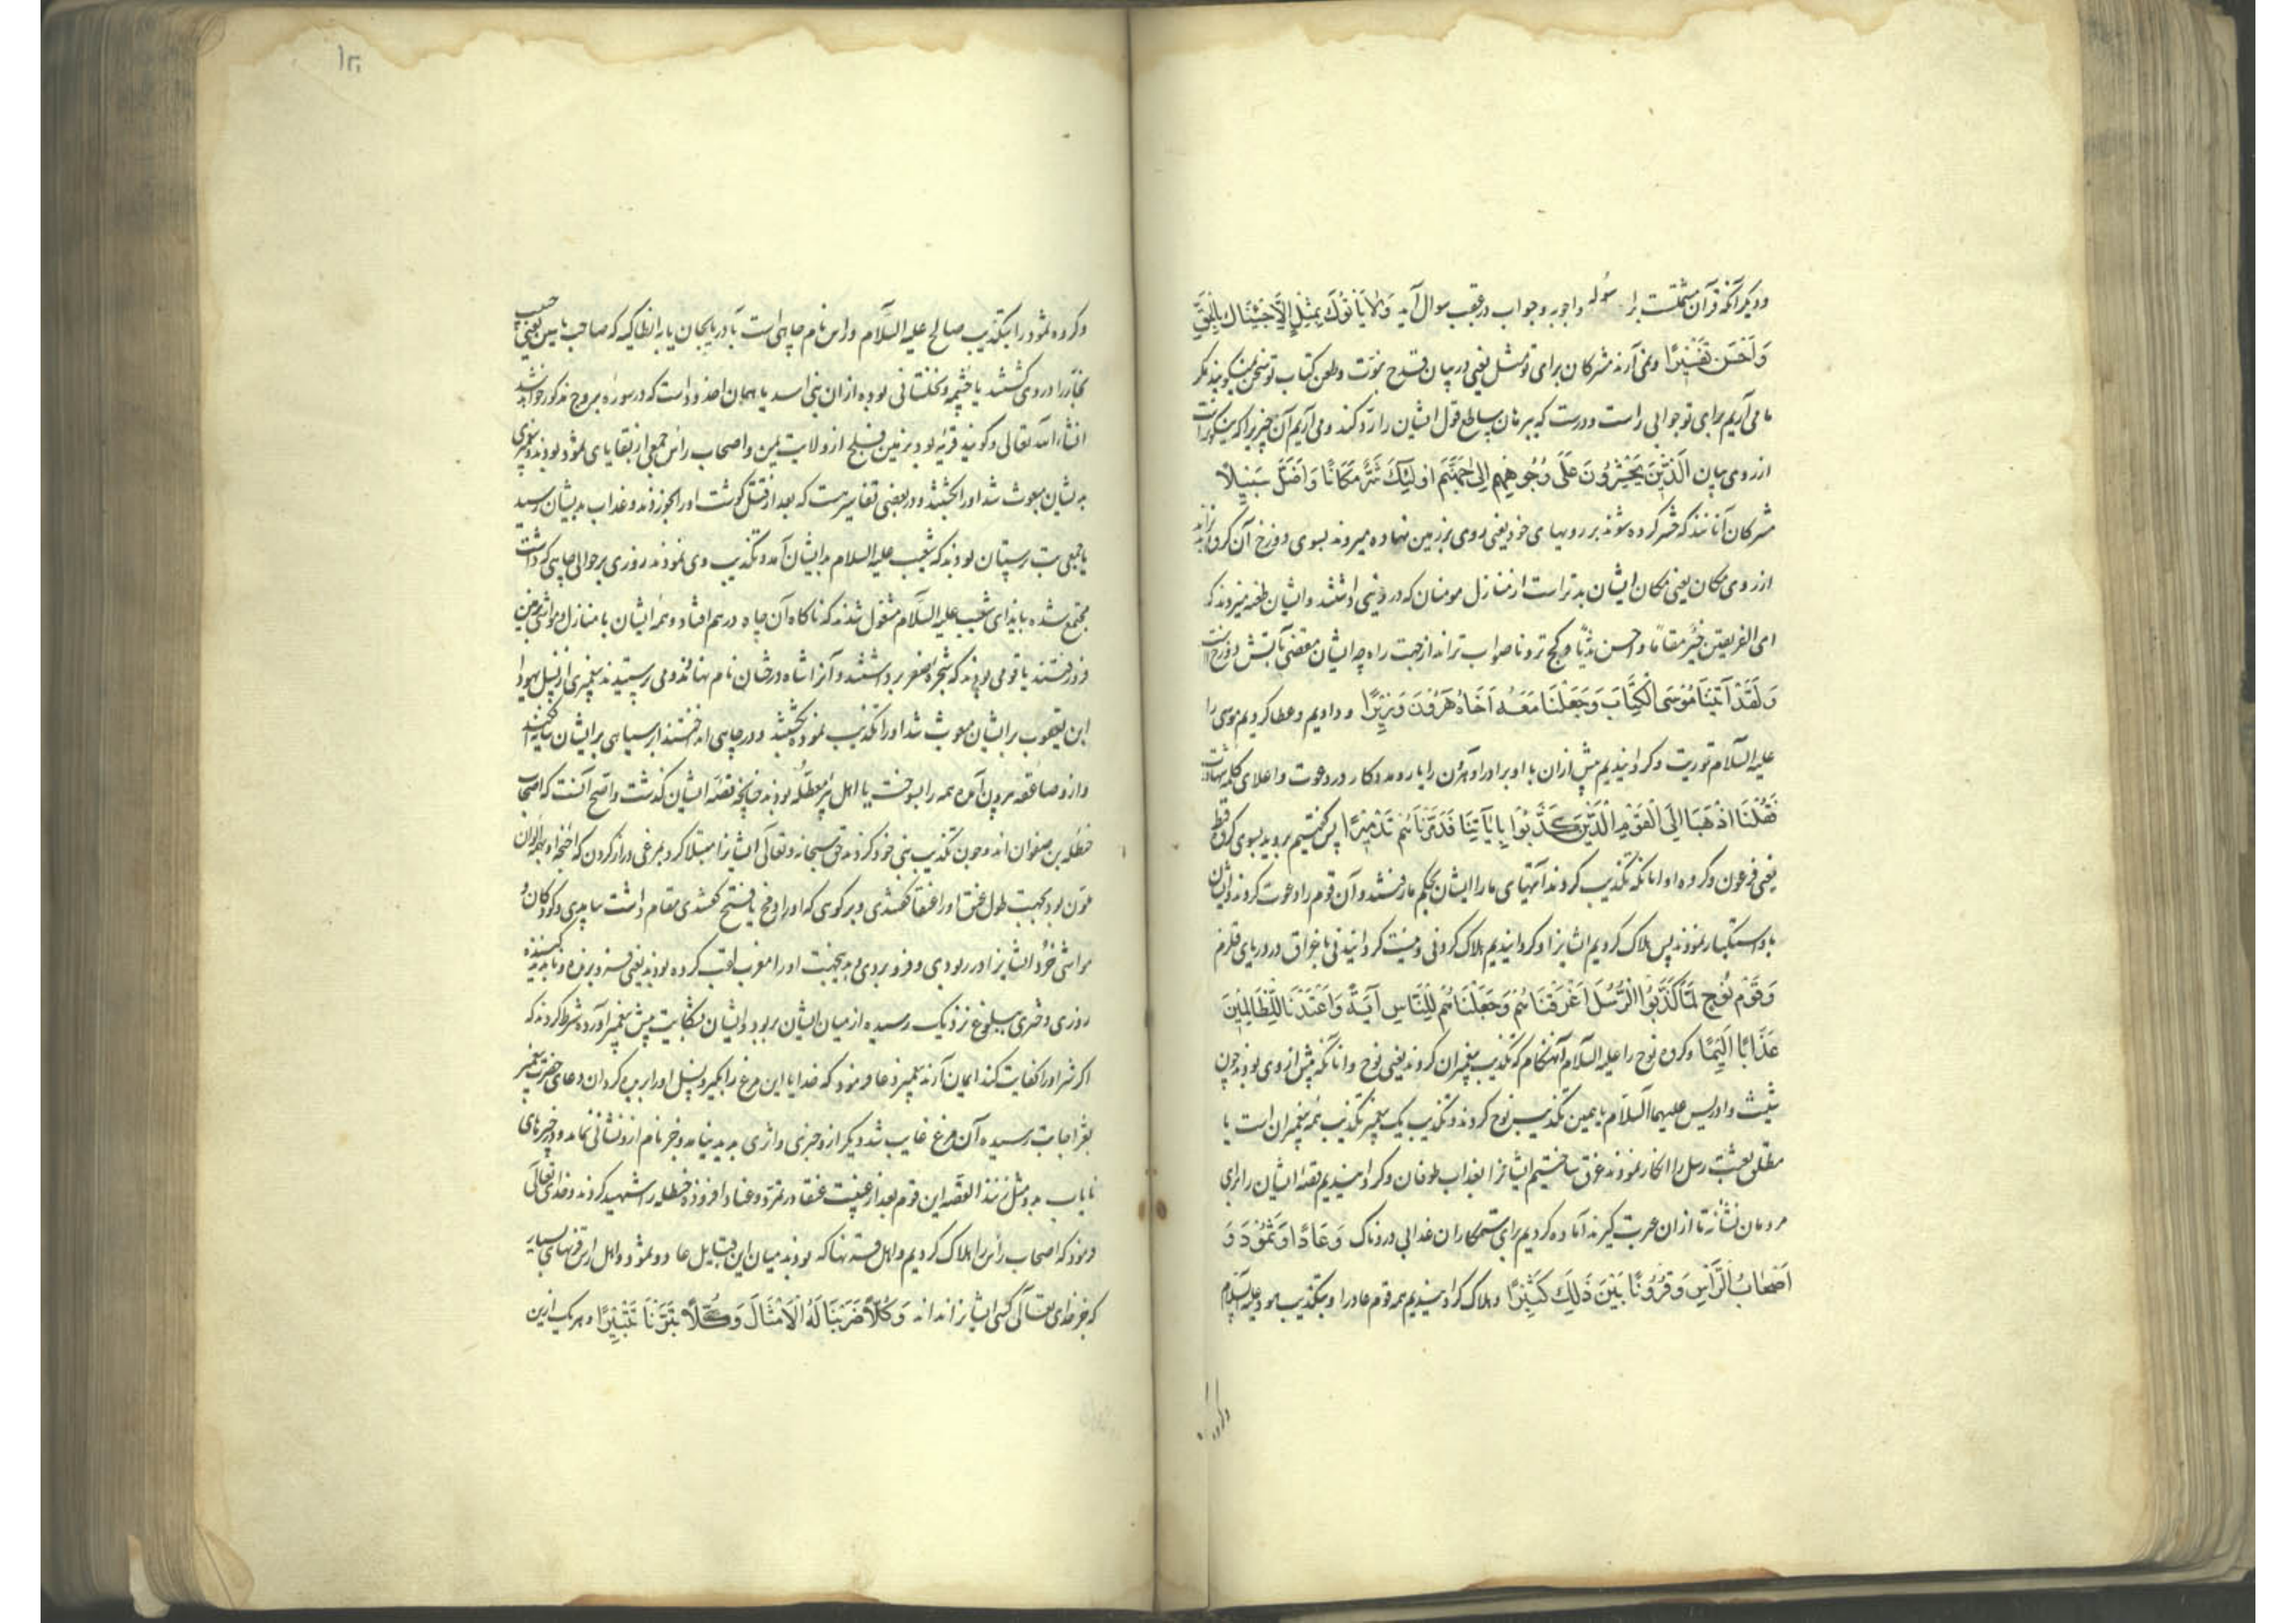 ودیکر آنکه قرآن مشتملست بر اسوله واجوبه وجواب در عقب سوال آید وَلَا یَأتُونَكَ بِمَثَلٍ اِلَّا جِئْنَاكَ بِالْحَقِّ
وَاَحْسَنَ تَفْسِیرًا ونمی آرند مشرکان برای تو مثلی یعنی در بیان قدح نبوّت وطعن کتاب تو سخن نمیکویند مکر
ما می آریم برای تو جوابی راست ودرست که ببرهان ساطع قول ایشان را ردّ کند ومی آریم آن چیزیرا که نیکوترست
از روی بیان الَّذِینَ یُحْشَرُونَ عَلَی وُجُوهِهِمْ اِلَی جَهَنَّمَ اُولٰئِكَ شَرٌّ مَكَانًا وَاَضَلُّ سَبِیلًا
مشرکان آنانند که حشر کرده شوند بر رویهای خود یعنی روی بر زمین نهاده میروند بسوی دوزخ آن کروه بدتراند
از روی مکان یعنی مکان ایشان بدتر است از منازل مومنان که در دنیی داشتند وایشان طعنه میزدند که
ای الفریقین خَیْر مقامًا واحسن ندیًّا وکج تر وناصواب تراند از جهت راه چه ایشان مفضی بآتش دوزخ است
وَلَقَدْ آتَیْنَا مُوسَی الْكِتَابَ وَجَعَلْنَا مَعَهُ اَخَاهُ هَرُونَ وَزِیرًا ودادیم وعطا کردیم موسی را
علیه السلام توریت وکردانیدیم پیش ازان با او برادر او هرون را یار ومددکار در دعوت واعلای کلمه
فَقُلْنَا اذْهَبَا اِلَی الْقَوْمِ الَّذِینَ كَذَّبُوا بِاٰیَاتِنَا فَدَمَّرْنَاهُمْ تَدْمِیرًا پس کفتیم بروید بسوی کروه قبط
یعنی فرعون وکروه او انانکه تکذیب کردند آیتهای ما را ایشان بحکم ما رفتند وآن قوم را دعوت کردند وایشان
با استکبار نمودند پس هلاک کردیم ایشانرا وکردانیدیم هلاک کردنی ونیست کردانیدنی باغراق در دریای قلزم
وَقَوْمَ نُوحٍ لَمَّا كَذَّبُوا الرُّسُلَ اَغْرَقْنَاهُمْ وَجَعَلْنَاهُمْ لِلنَّاسِ آیَةً وَاَعْتَدْنَا لِلظَّالِمِینَ
عَذَابًا اَلِیمًا وکروه نوح را علیه السلام آنهنکام که تکذیب پیغمبران کردند یعنی نوح وانانکه پیش از وی بودند چون
شیث وادریس علیهما السلام یا همین تکذیب نوح کردند وتکذیب یک پیغمبر تکذیب همه پیغمبران است یا
مطلق بعثت رسل را انکار نمودند غرق ساختیم ایشانرا بعذاب طوفان وکردانیدیم قصّه ایشان را برای
مردمان نشانه تا ازان عبرت کیرند آماده کردیم برای ستمکاران عذابی دردناک وَعَادًا وَثَمُودَ وَ
اَصْحَابَ الرَّسِّ وَقُرُونًا بَیْنَ ذٰلِكَ كَثِیرًا وهلاک کردانیدیم همه قوم عاد را وبتکذیب هود علیه السلام
وکروه ثمود را بتکذیب صالح علیه السلام وراس نام چاهی است بآذربایجان یا به انطاکیه که صاحب یاسین یعنی حبیب
نجّار را در وی کشتند یا چشمه ونخلستانی بوده ازان بنی اسد یا همان اخدود است که در سوره بروج مذکور خواهد شد
انشاءالله تعالی وکویند قریه بود بزمین فلج از ولایت یمن واصحاب رس جمعی از بقایای ثمود بودند پیغمبری
بدیشان مبعوث شد اورا بکشتند ودر بعضی تفاسیر هست که بعد از قتل کوشت اورا بخوردند وعذاب بدیشان رسید
یا جمعی بت پرستان بودند که شعیب علیه السلام بدایشان آمد وتکذیب وی نمودند روزی بر حوالی چاهی که داشتند
مجتمع شده بایذای شعیب علیه السلام مشغول شدند که ناکاه آن چاه درهم افتاد وهمه ایشان با منازل ومواشی بزمین
فرو رفتند یا قومی بودند که شجره صنوبر داشتند وآنرا شاه درختان نام نهاده ومی پرستیدند پیغمبری از نسل یهودا
ابن یعقوب بر ایشان مبعوث شد اورا تکذیب نموده بکشتند ودر چاهی انداختند ابر سیاهی بر ایشان سایه افکند
وازو صاعقه بیرون آمده همه را بسوخت یا اهل بئر معطّله بودند چنانچه قصّه ایشان کذشت واصح آنست که اصحاب
حنظله بن صفوان اند وچون تکذیب نبی خود کردند حق سبحانه وتعالی ایشانرا مبتلا کرد بمرغی دراز کردن که اجنحه او بهمه الوان
ملون بود بجهت طول عنق اورا عنقا کفتندی وبر کوهی که اورا فخ یا فتح کفتندی مقام داشت بیامدی وکودکان و
مواشی خُرد ایشانرا در ربودی وفرو بردی وبدینجهت اورا مغرب لقب کرده بودند یعنی فرو برنده وناپدید کننده
روزی دختری ببلوغ نزدیک رسیده از میان ایشان بربود وایشان بشکایت پیش پیغمبر آورده شرط کردند که
اکر شر اورا کفایت کند ایمان آرند پیغمبر دعا فرمود که خدایا این مرغ را بکیر ونسل اورا بریده کردان دعای حضرت پیغمبر
بعزّ اجابت رسیده آن مرغ غایب شد ودیکر ازو خبری واثری پدید نیامد وجز نام ازو نشانی نماند ودر خبرهای
نایاب بدو مثل زنند القصّه این قوم بعد از غیبت عنقا در تمرّد وعناد افزوده حنظله را شهید کردند وخدای تعالی
فرمود که اصحاب رس را هلاک کردیم واهل قرنها که بودند میان این قبایل عاد وثمود واهل رس قرنهای بسیار
که جز خدای تعالی کسی ایشانرا نداند وَكُلًّا ضَرَبْنَا لَهُ الْاَمْثَالَ وَكُلًّا تَبَّرْنَا تَتْبِیرًا وهر یک ازین